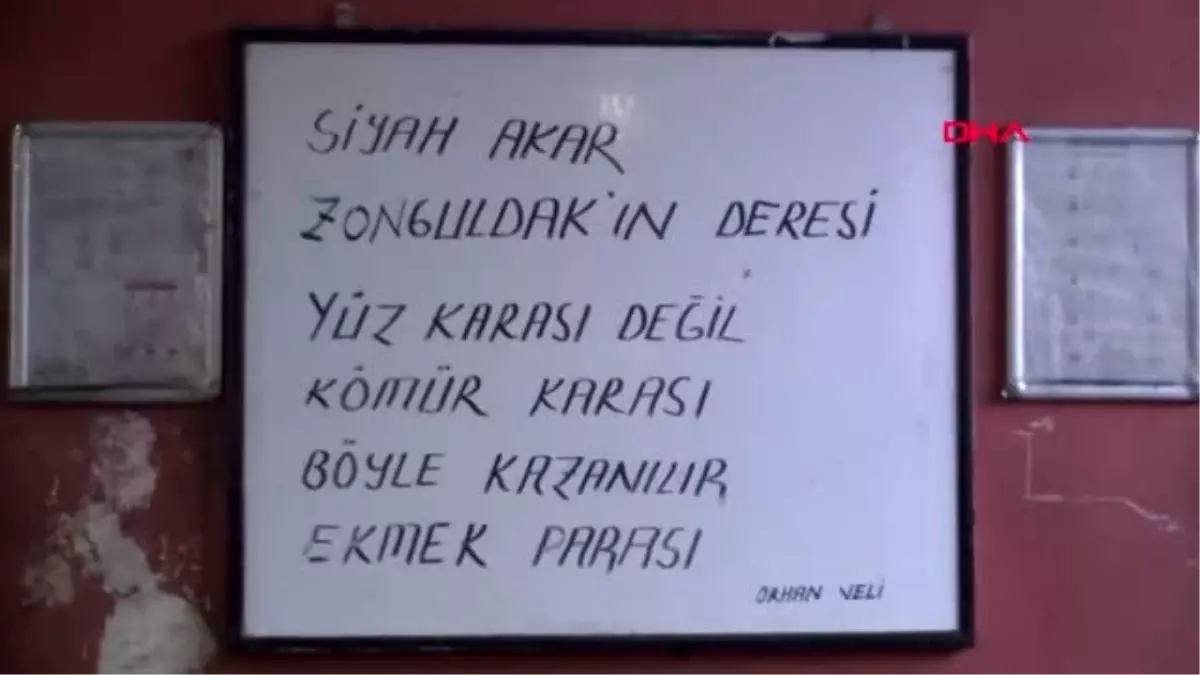 SİYAH AKAR
ZONGULDAK'IN DERESİ
YÜZ KARASI DEĞİL
KÖMÜR KARASI
BÖYLE KAZANILIR
EKMEK PARASI
ORHAN VELİ
DHA